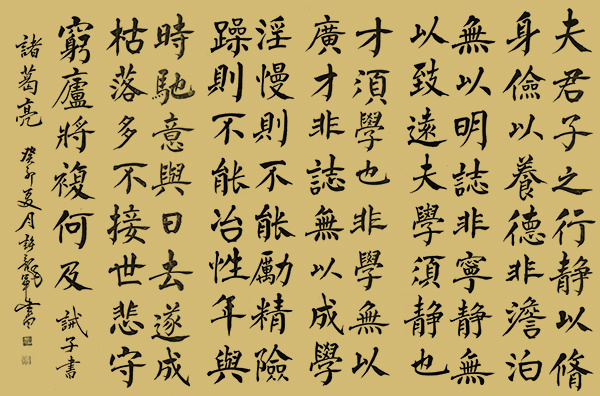 夫君子之行靜以脩
身儉以養德非澹泊
無以明誌非寧靜無
以致遠夫學須靜也
才須學也非學無以
廣才非誌無以成學
淫慢則不能勵精險
躁則不能冶性年與
時馳意與日去遂成
枯落多不接世悲守
窮廬將複何及 誡子書
諸葛亮 癸卯夏月 書